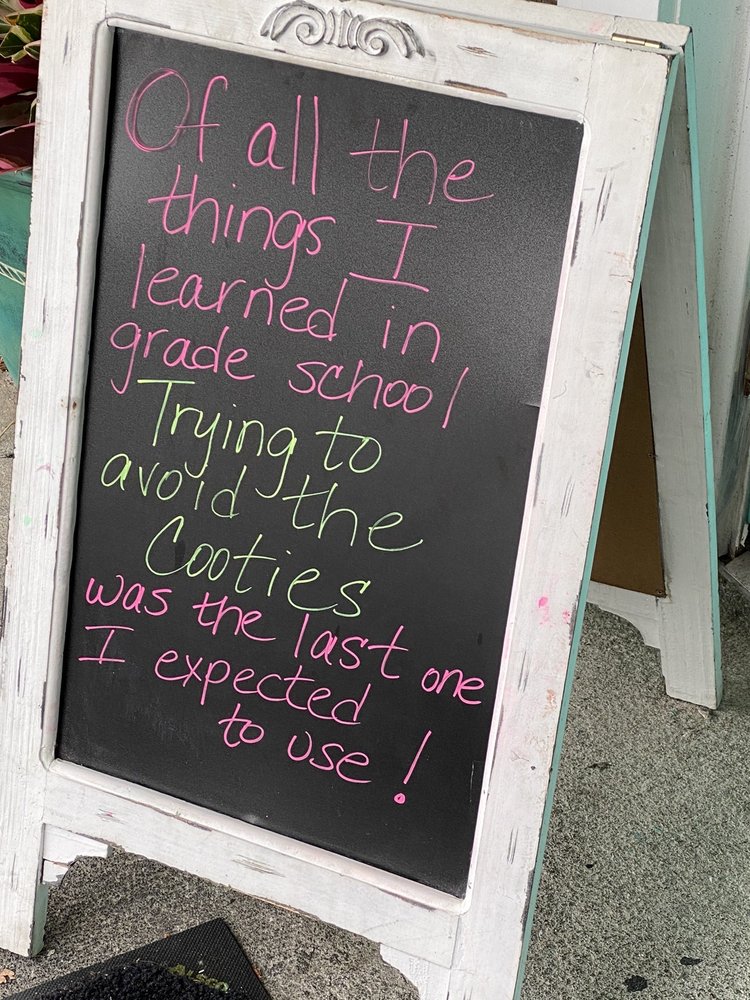 Of all the
things I
learned in
grade school
Trying to
avoid the
Cooties
was the last one
I expected
to use!
ALSCO